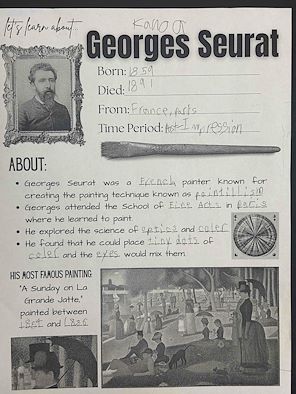 let's learn about...
Georges Seurat
Born: 1859
Died: 1891
From: France, paris
Time Period: Post-Impression
ABOUT:
• Georges Seurat was a French painter known for
creating the painting technique known as pointillism
• Georges attended the School of Fine Arts in paris
where he learned to paint.
• He explored the science of optics and color
• He found that he could place tiny dots of
color and the eyes would mix them.
HIS MOST FAMOUS PAINTING:
"A Sunday on La
Grande Jatte,"
painted between
and 1886